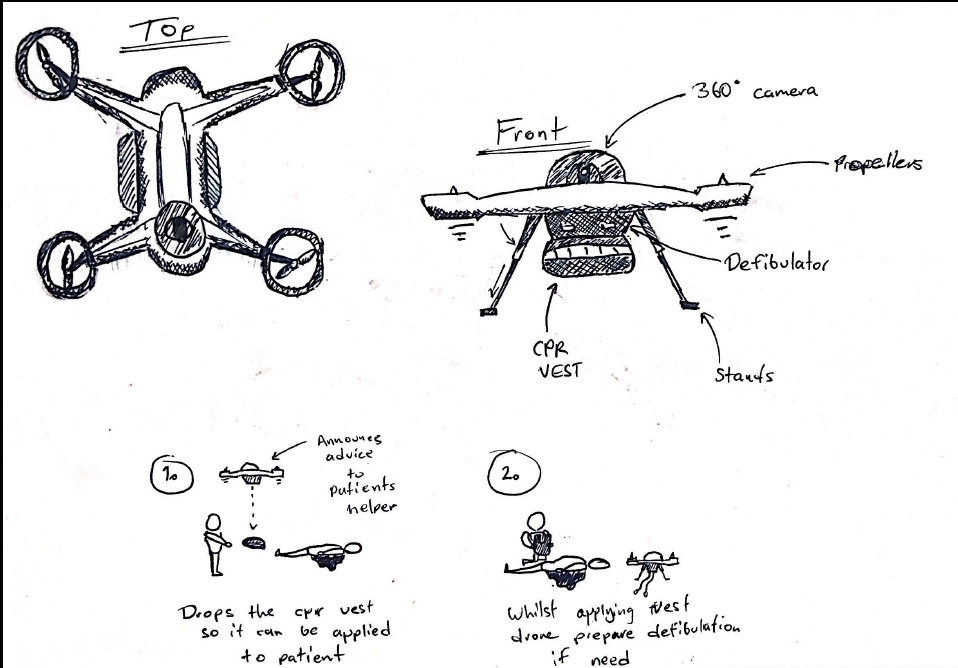 Top
Front
360° camera
Propellers
Defibulator
CPR
VEST
Stands
1.
Announes
advice
to
patients
helper
Drops the cpr vest
so it can be applied
to patient
2.
Whilst applying vest
drone prepare defibulation
if need